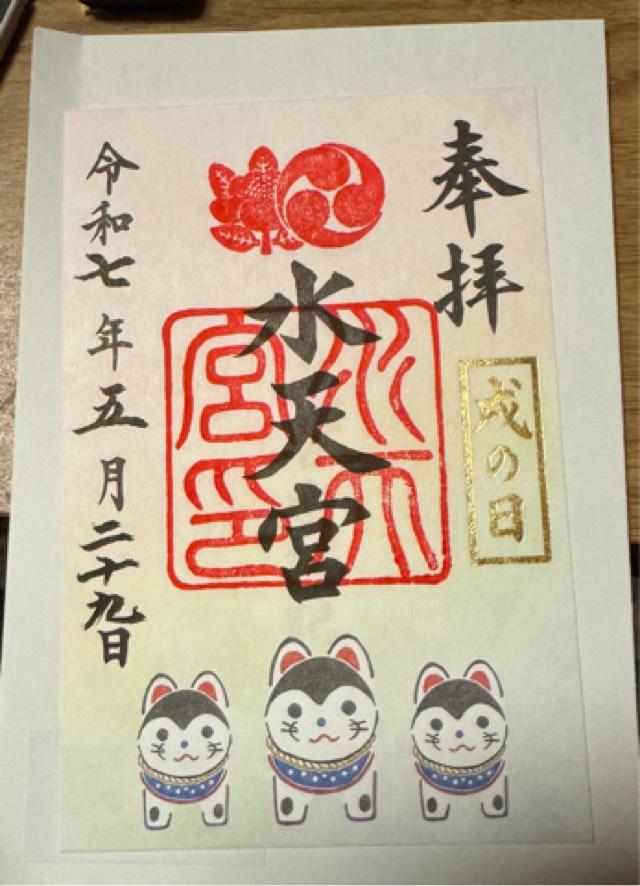 奉拝
戌の日
水天宮
水天宮印
令和七年五月二十九日